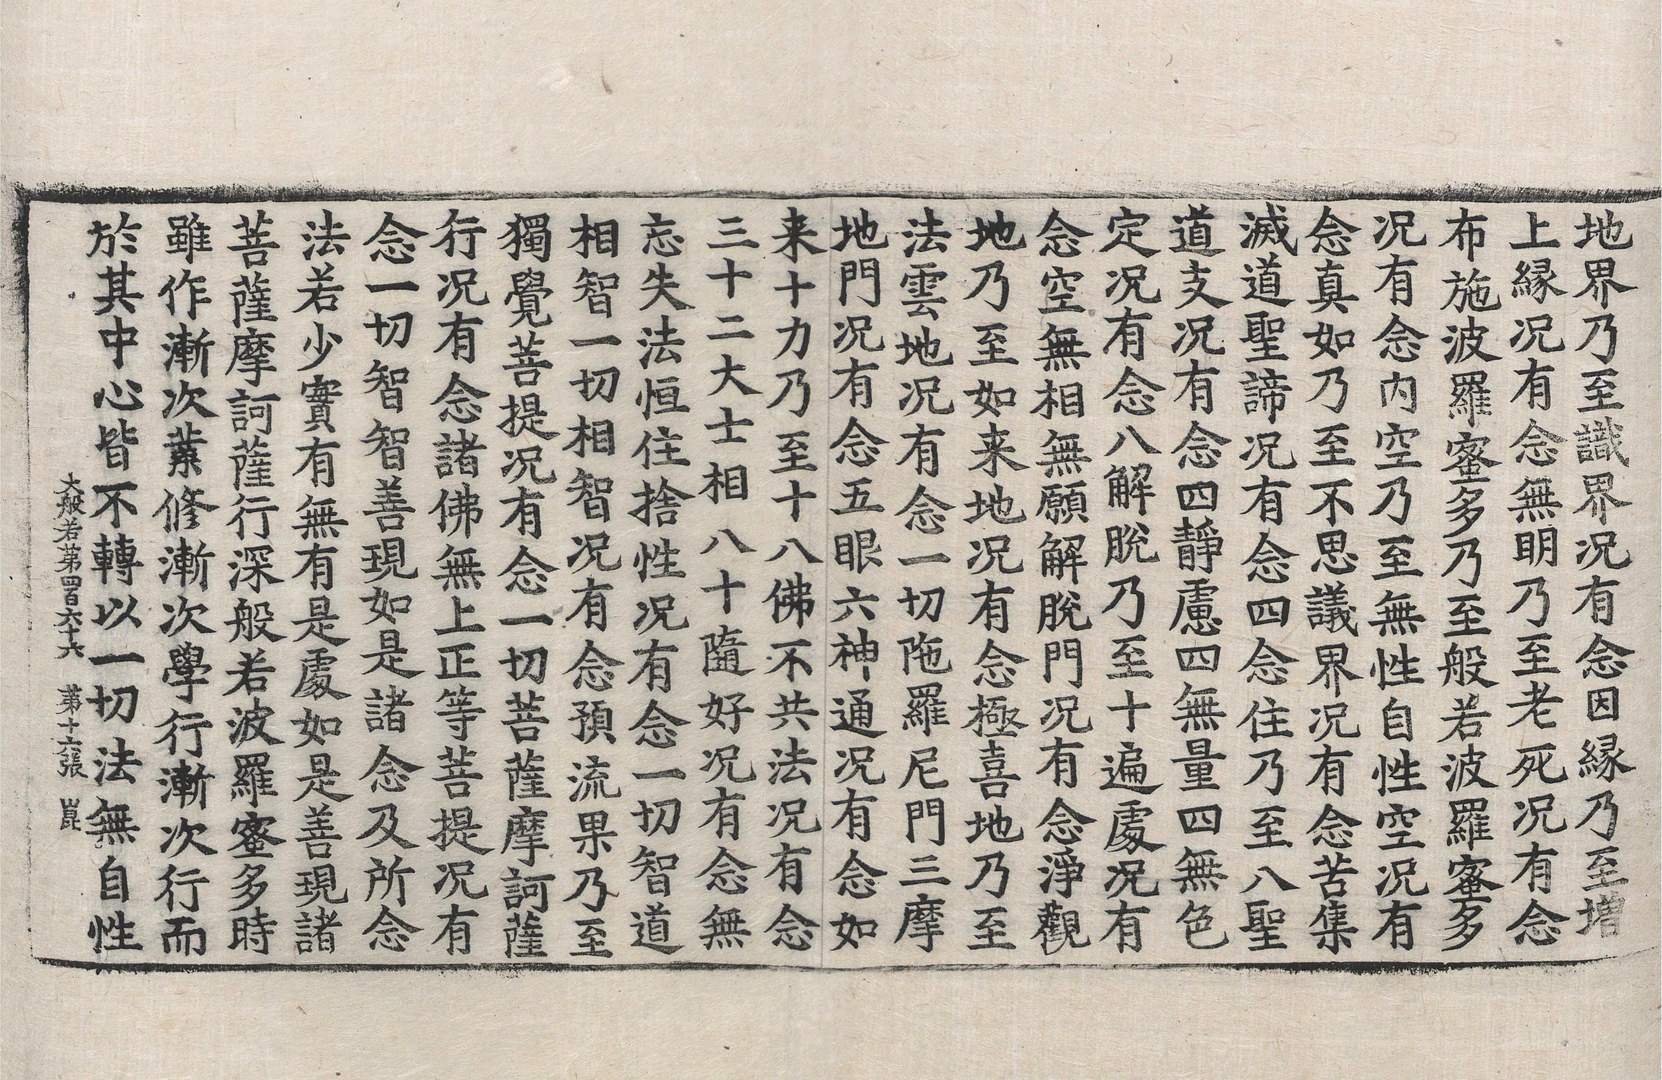 地界乃至識界况有念因縁乃至增
上縁况有念無明乃至老死况有念
布施波羅蜜多乃至般若波羅蜜多
况有念内空乃至無性自性空况有
念真如乃至不思議界况有念苦集
滅道聖諦况有念四念住乃至八聖
道支况有念四靜慮四無量四無色
定况有念八解脫乃至十遍處况有
念空無相無願解脫門况有念淨觀
地乃至如来地况有念極喜地乃至
法雲地况有念一切陁羅尼門三摩
地門况有念五眼六神通况有念如
来十力乃至十八佛不共法况有念
三十二大士相八十隨好况有念無
忘失法恒住捨性况有念一切智道
相智一切相智况有念預流果乃至
獨覺菩提况有念一切菩薩摩訶薩
行况有念諸佛無上正等菩提况有
念一切智智善現如是諸念及所念
法若少實有無有是處如是善現諸
菩薩摩訶薩行深般若波羅蜜多時
雖作漸次業修漸次學行漸次行而
於其中心皆不轉以一切法無自性
大般若第四百六十六 第十六張 崑